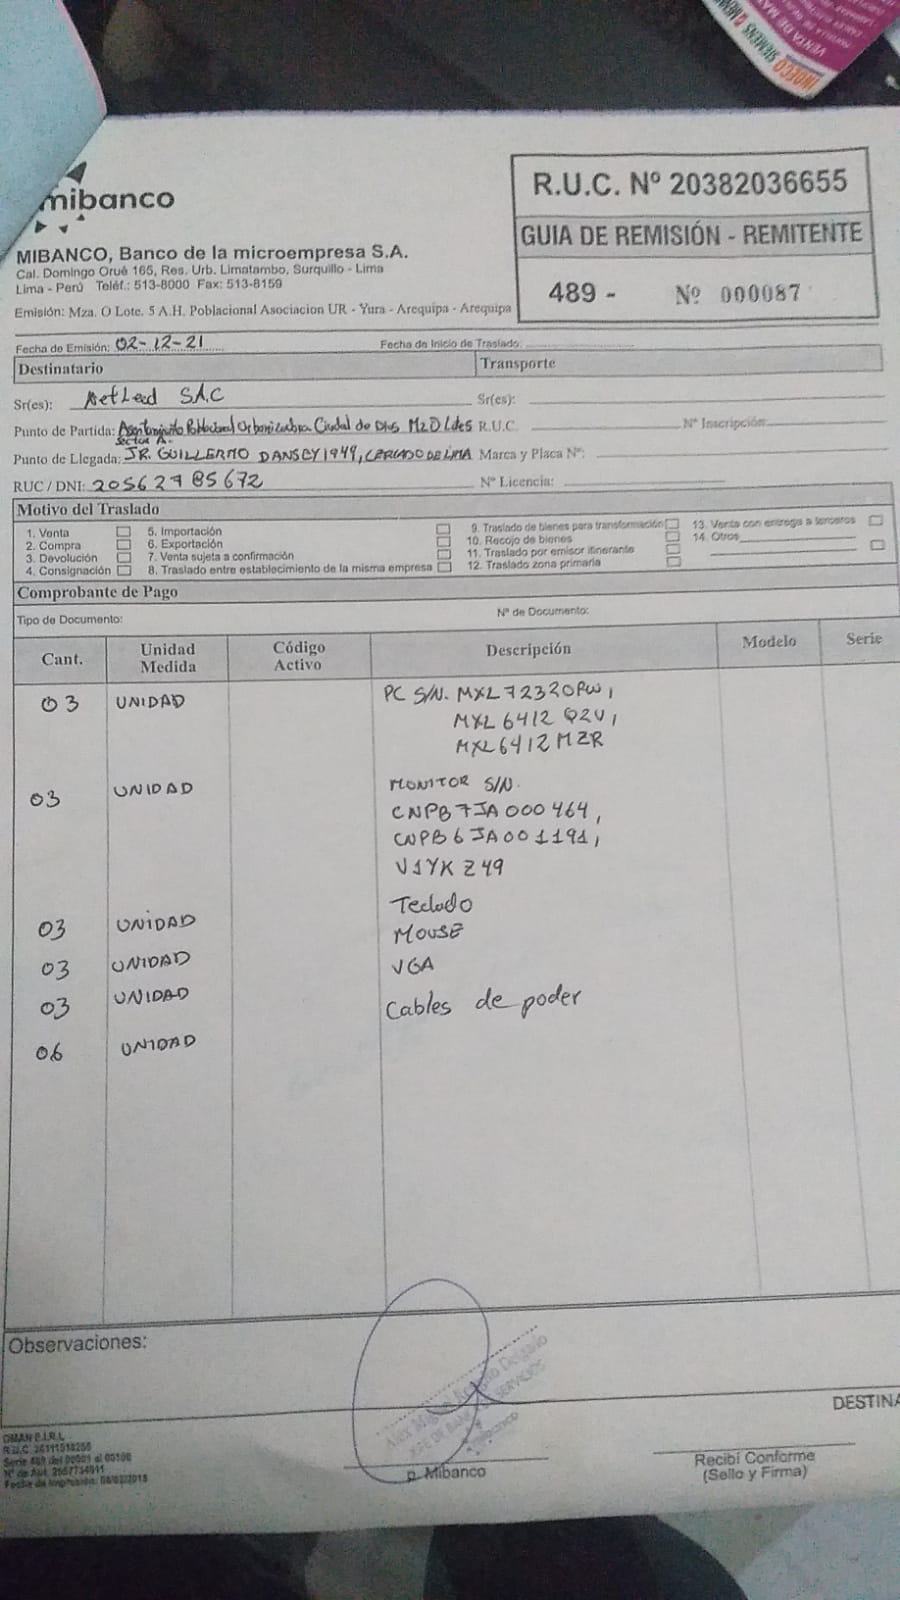 mibanco
MIBANCO, Banco de la microempresa S.A.
Cal. Domingo Orué 165, Res. Urb. Limatambo, Surquillo - Lima
Lima - Perú Teléf.: 513-8000 Fax: 513-8159
Emisión: Mza. O Lote. 5 A.H. Poblacional Asociacion UR - Yura - Arequipa - Arequipa
R.U.C. Nº 20382036655
GUIA DE REMISIÓN - REMITENTE
489 - Nº 000087
Fecha de Emisión: 02-12-21 Fecha de Inicio de Traslado:
Destinatario Transporte
Sr(es): SAC Sr(es):
Punto de Partida: Ciudad de Dios R.U.C. Nº Inscripción:
Sector A-
Punto de Llegada: JR. GUILLERMO DANSEY 1949, CERCADO DE LIMA Marca y Placa Nº:
RUC / DNI: 20562785672 Nº Licencia:
Motivo del Traslado
1. Venta 5. Importación 9. Traslado de bienes para transformación 13. Venta con entrega a terceros
2. Compra 6. Exportación 10. Recojo de bienes 14. Otros
3. Devolución 7. Venta sujeta a confirmación 11. Traslado por emisor itinerante
4. Consignación 8. Traslado entre establecimiento de la misma empresa 12. Traslado zona primaria
Comprobante de Pago
Tipo de Documento: Nº de Documento:
Cant. Unidad Medida Código Activo Descripción Modelo Serie
03 UNIDAD PC S/N. MXL72320RW,
MXL6412Q2V,
MXL6412MZR
03 UNIDAD MONITOR S/N.
CNPB7JA000464,
CNPB6JA001191,
V1YKZ49
Teclado
03 UNIDAD MOUSE
03 UNIDAD VGA
03 UNIDAD Cables de poder
06 UNIDAD
Observaciones:
DESTINA
OMAN E.I.R.L.
Serie 489 del 00001 al 00100
p. Mibanco
Recibí Conforme
(Sello y Firma)
INDECO SIEMENS